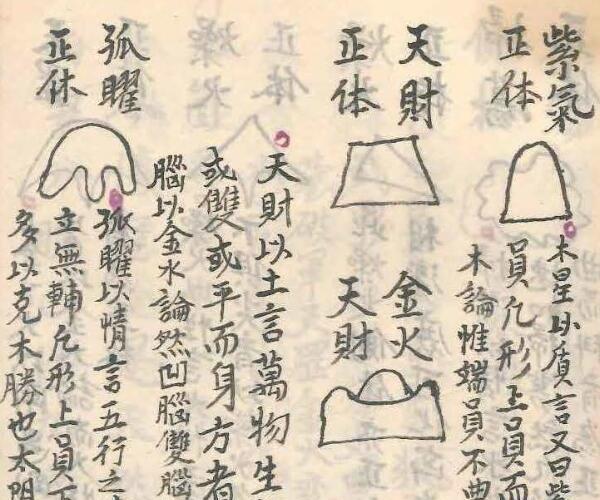 紫氣
正体
木星以质言又曰紫
員凢形上員而
木論惟端員不典
天財
正体
金火
天財
天財以土言萬物生
或雙或平而身方者
腦以金水論然凹腦雙腦
孤曜
正体
孤曜以情言五行之
立無輔凢形上員下
多以克木勝也太阴